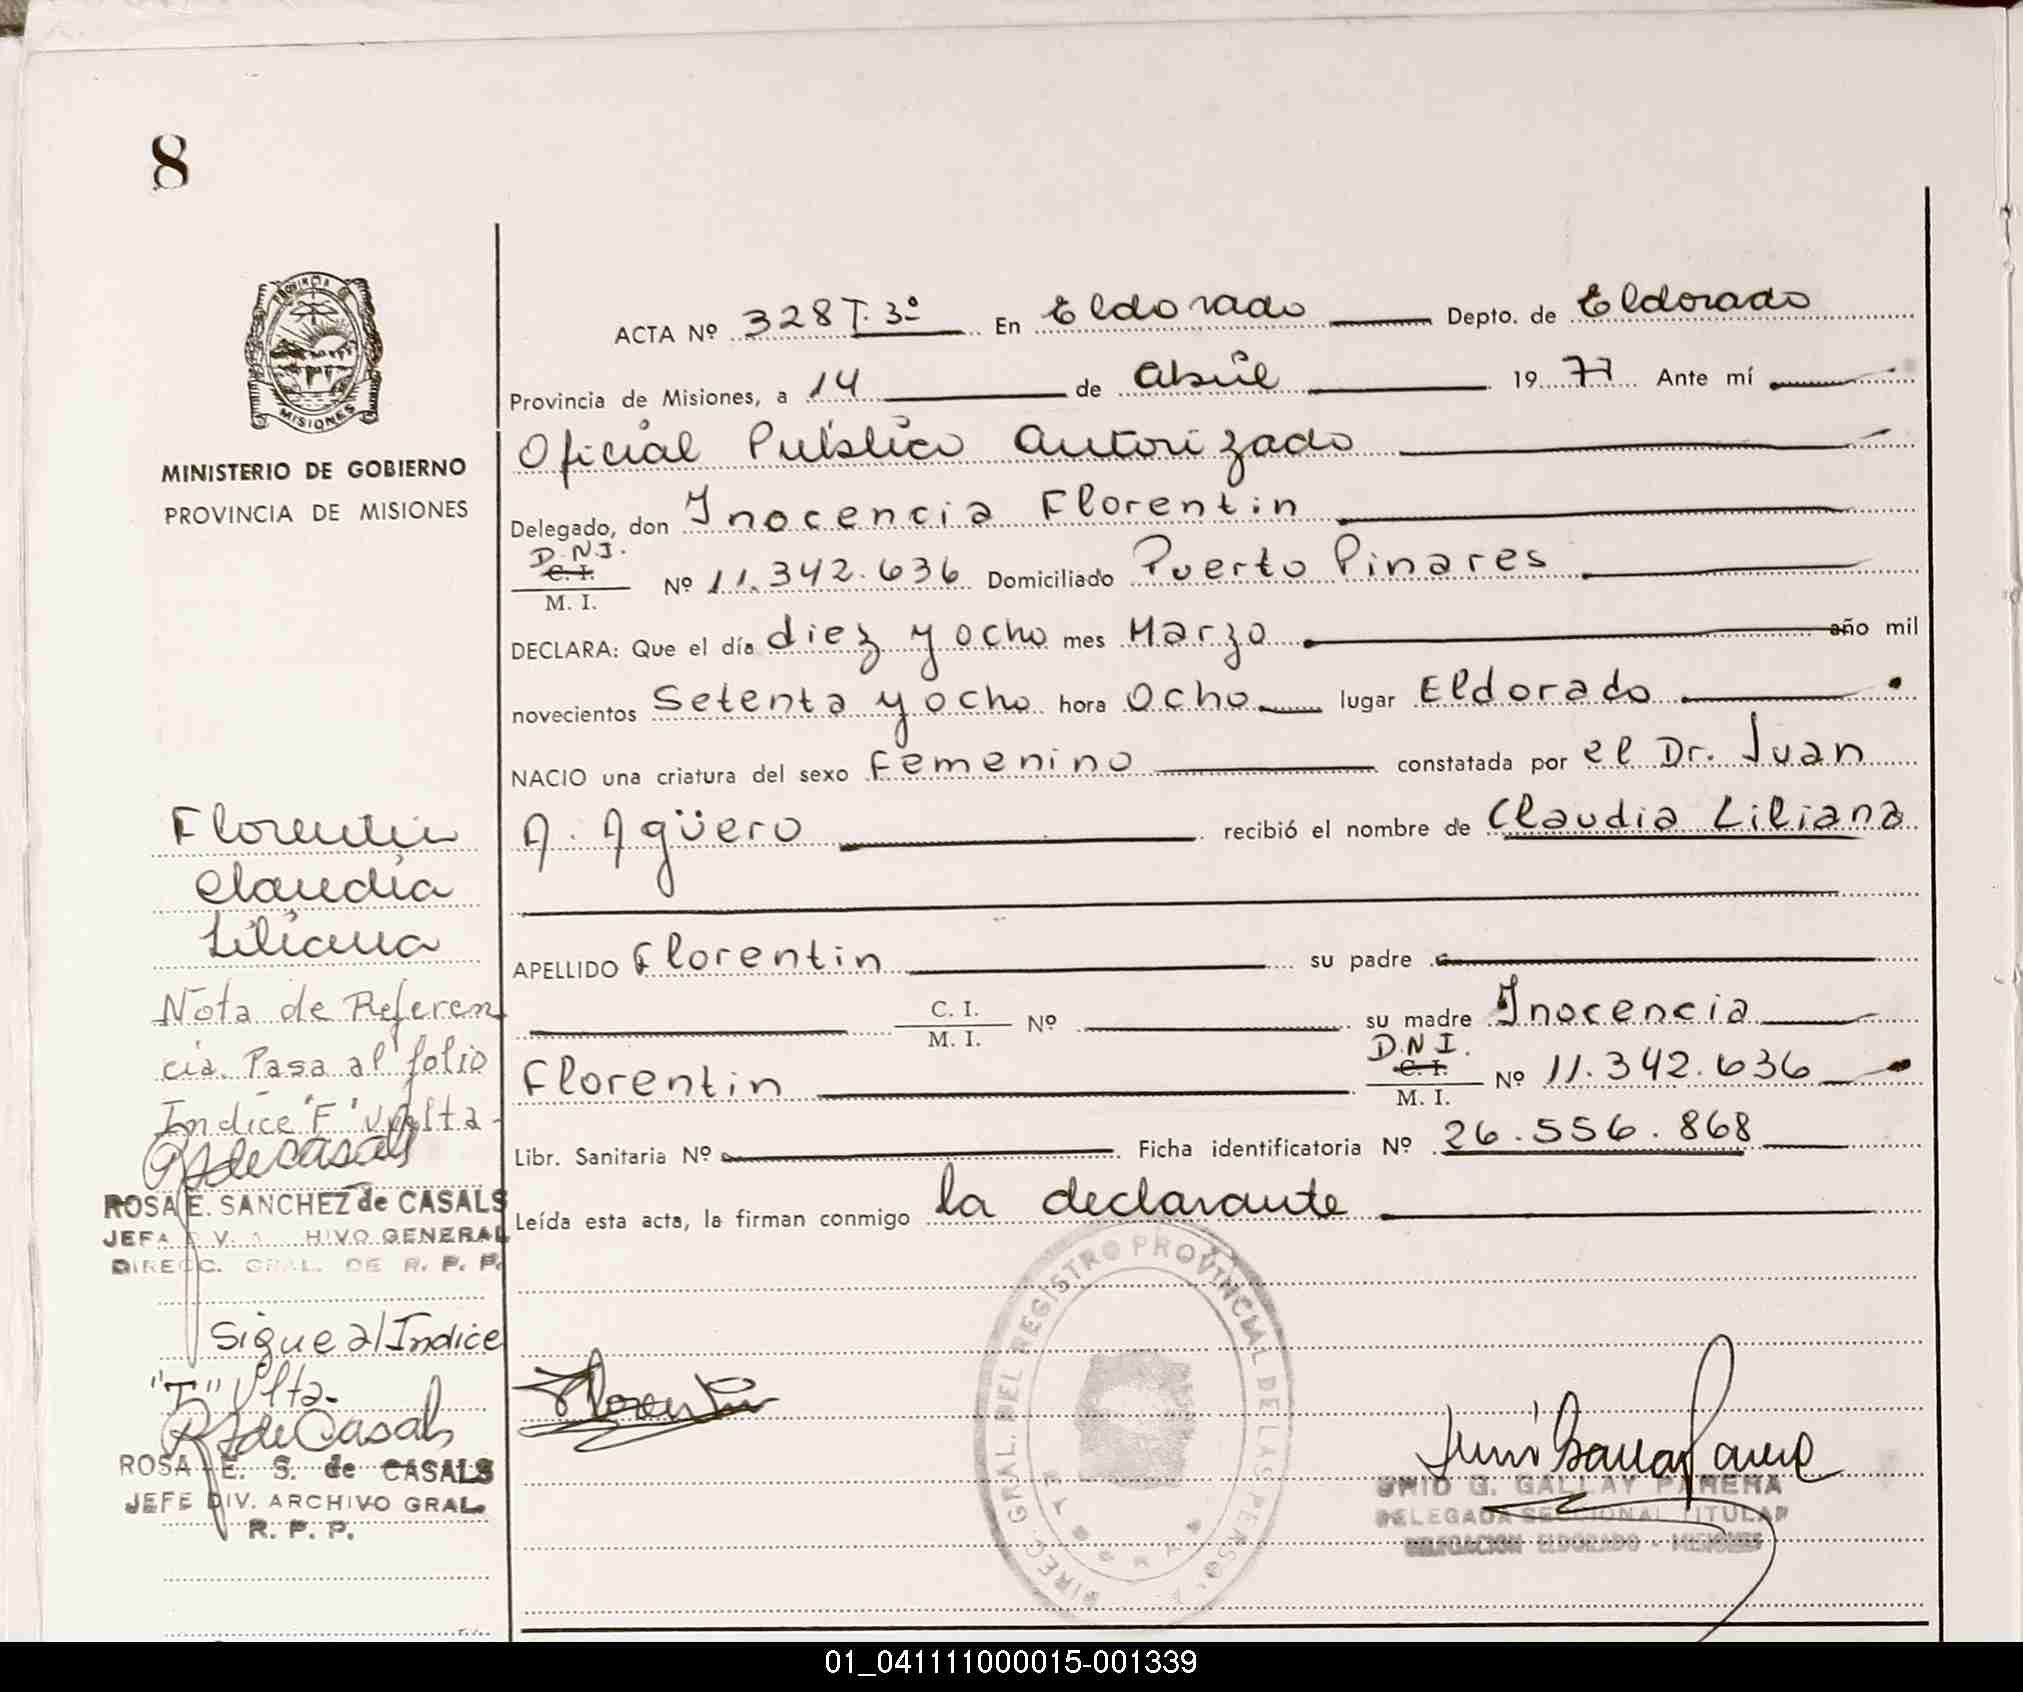 8
PROVINCIA DE
MISIONES
MINISTERIO DE GOBIERNO
PROVINCIA DE MISIONES
ACTA Nº 328 T. 3º En Eldorado Depto. de Eldorado
Provincia de Misiones, a 14 de abril 1977 Ante mí
Oficial Público autorizado
Delegado, don Inocencia Florentin
D.N.I.
C. I.
M. I.
Nº 11.342.636 Domiciliado Puerto Pinares
DECLARA: Que el día diez y ocho mes Marzo año mil
novecientos Setenta y ocho hora Ocho lugar Eldorado
NACIO una criatura del sexo Femenino constatada por el Dr. Juan
A. Agüero recibió el nombre de Claudia Liliana
APELLIDO Florentin su padre
C. I.
M. I.
Nº su madre Inocencia
Florentin D.N.I.
C. I.
M. I.
Nº 11.342.636
Libr. Sanitaria Nº Ficha identificatoria Nº 26.556.868
Leída esta acta, la firman conmigo la declarante
Florentin
Claudia
Liliana
Nota de Referen
cia. Pasa al folio
Indice "F" vuelta-
RSdeCasals
ROSA E. SANCHEZ de CASALS
JEFA DIV. ARCHIVO GENERAL
DIRECC. GRAL. DE R. P. P.
Sigue al Indice
Vlta-
RSdeCasals
ROSA E. S. de CASALS
JEFE DIV. ARCHIVO GRAL.
R. P. P.
Florentin
DIREC. GRAL. DEL REGISTRO PROVINCIAL DE LAS PERSO
G. GALLAY PARERA
DELEGADA SECCIONAL TITULAR
DELEGACION ELDORADO - MISIONES
01_041111000015-001339